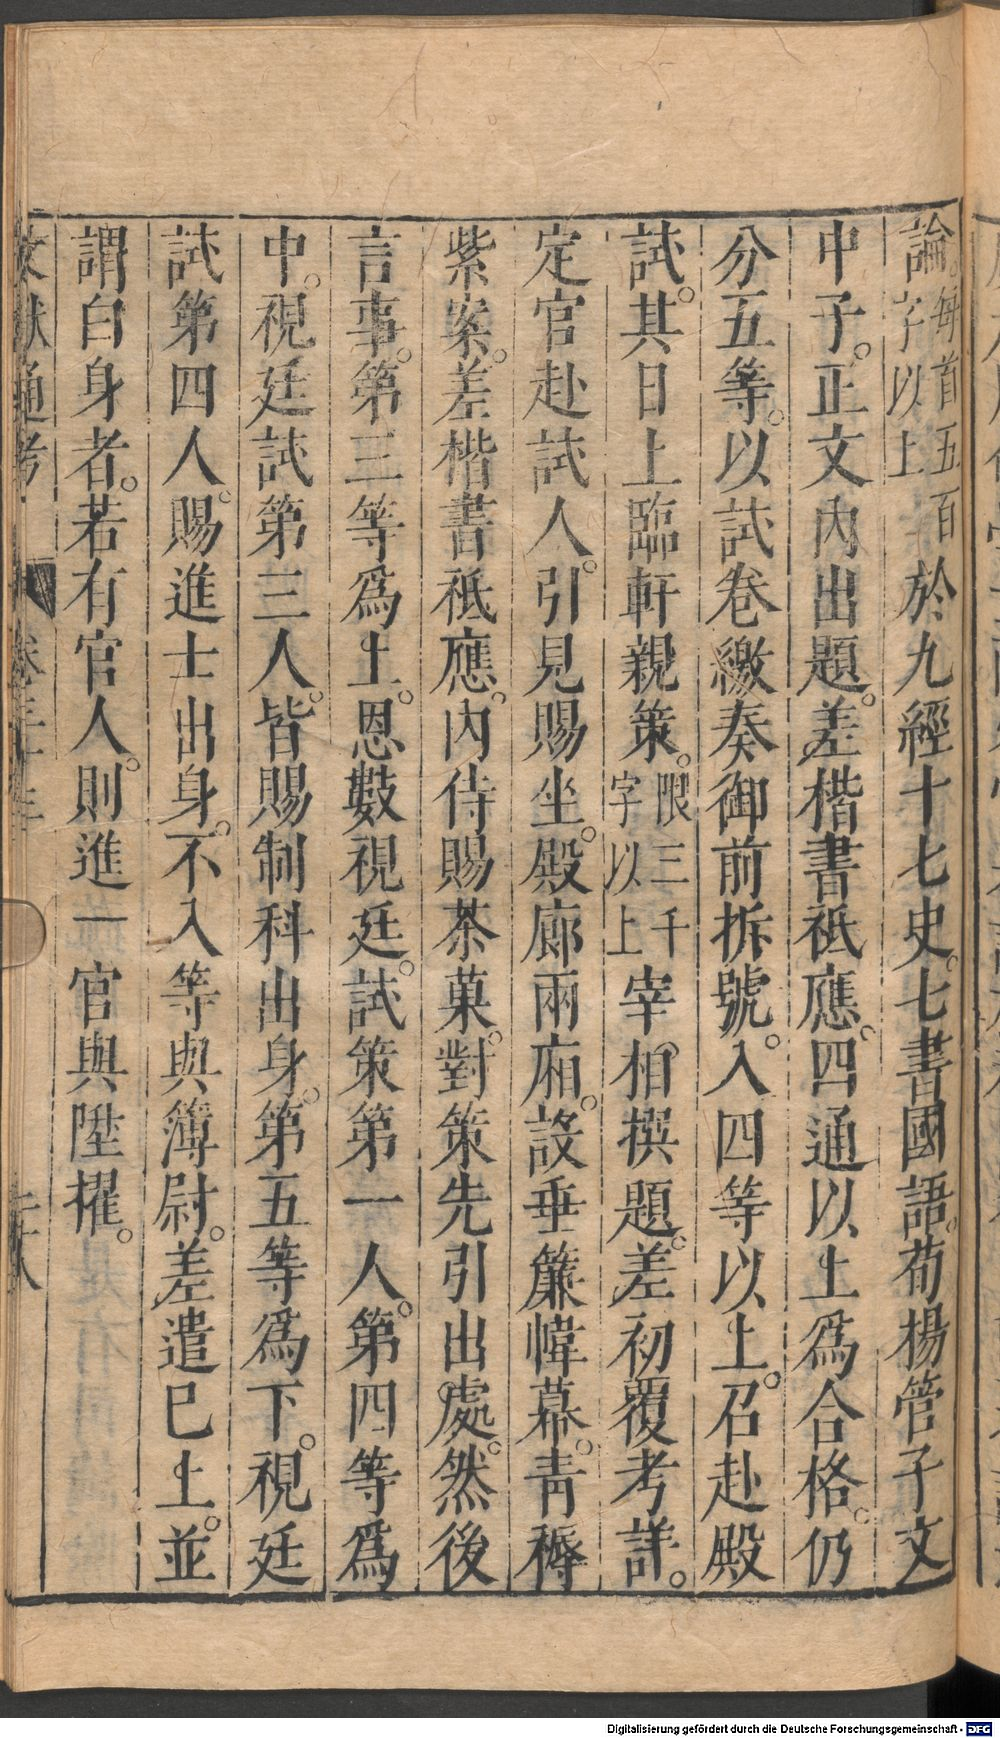 論。每首五百字以上於九經十七史。七書國語。荀揚管子文
中子。正文內出題。差楷書祗應。四通以上爲合格。仍
分五等。以試卷繳奏御前拆號。入四等以上。召赴殿
試。其日上臨軒親策。限三千字以上宰相撰題。差初覆考詳。
定官赴試人。引見賜坐。殿廊兩廂。設垂簾幃幕。靑褥
紫案。差楷書祗應。內侍賜茶菓。對策先引出處。然後
言事。第三等爲上。恩數視廷。試策第一人。第四等爲
中。視廷試第三人。皆賜制科出身。第五等爲下。視廷
試第四人。賜進士出身。不入等與簿尉。差遣已上。並
謂白身者。若有官人。則進一官與陞擢。
文獻通考
卷三十三
二十八
Digitalisierung gefördert durch die Deutsche Forschungsgemeinschaft - DFG